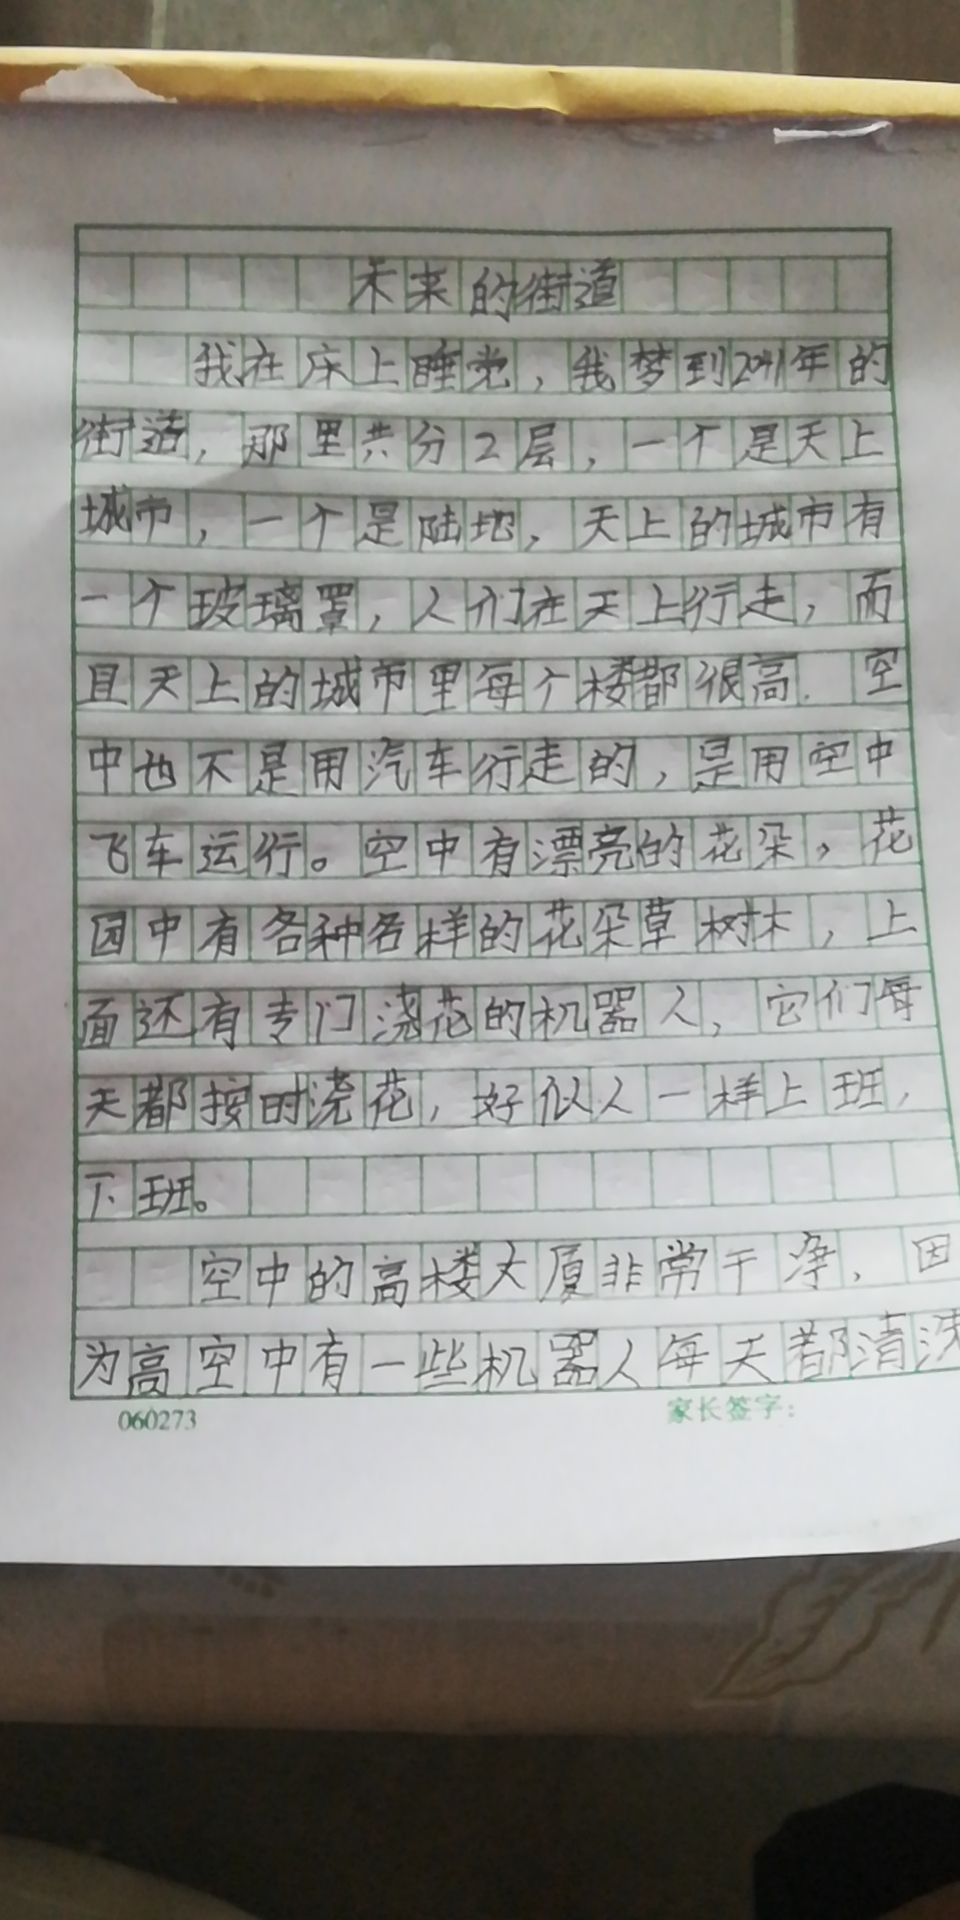 未来的街道
我在床上睡觉，我梦到2041年的
街道，那里共分2层，一个是天上
城市，一个是陆地，天上的城市有
一个玻璃罩，人们在天上行走，而
且天上的城市里每个楼都很高．空
中也不是用汽车行走的，是用空中
飞车运行。空中有漂亮的花朵，花
园中有各种各样的花朵草树木，上
面还有专门浇花的机器人，它们每
天都按时浇花，好似人一样上班，
下班。
空中的高楼大厦非常干净，因
为高空中有一些机器人每天都清洗
060273
家长签字：